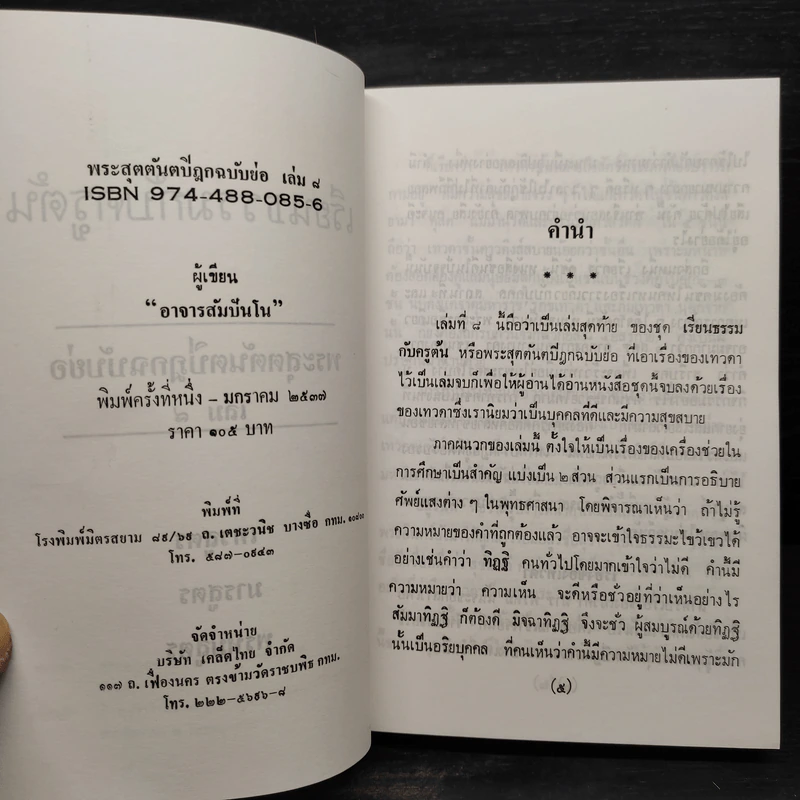 พระสุตตันตปิฎกฉบับย่อ เล่ม ๘
ISBN 974-488-085-6
ผู้เขียน
“อาจารสัมปันโน”
พิมพ์ครั้งที่หนึ่ง – มกราคม ๒๕๓๗
ราคา ๑๐๕ บาท
พิมพ์ที่
โรงพิมพ์มิตรสยาม ๘๙/๖๙ ถ. เตชะวนิช บางซื่อ กทม.
โทร. ๕๘๗-๐๙๔๓
จัดจำหน่าย
บริษัท เคล็ดไทย จำกัด
๑๑๗ ถ. เฟื่องนคร ตรงข้ามวัดราชบพิธ กทม.
โทร. ๒๒๒-๕๖๙๖-๘
คำนำ
* * *
เล่มที่ ๘ นี้ถือว่าเป็นเล่มสุดท้าย ของชุด เรียนธรรม
กับครูต้น หรือพระสุตตันตปิฎกฉบับย่อ ที่เอาเรื่องของเทวดา
ไว้เป็นเล่มจบก็เพื่อให้ผู้อ่านได้อ่านหนังสือชุดนี้จบลงด้วยเรื่อง
ของเทวดาซึ่งเรานิยมว่าเป็นบุคคลที่ดีและมีความสุขสบาย
ภาคผนวกของเล่มนี้ ตั้งใจให้เป็นเรื่องของเครื่องช่วยใน
การศึกษาเป็นสำคัญ แบ่งเป็น ๒ ส่วน ส่วนแรกเป็นการอธิบาย
ศัพย์แสงต่าง ๆ ในพุทธศาสนา โดยพิจารณาเห็นว่า ถ้าไม่รู้
ความหมายของคำที่ถูกต้องแล้ว อาจจะเข้าใจธรรมะไขว้เขวได้
อย่างเช่นคำว่า ทิฏฐิ คนทั่วไปโดยมากเข้าใจว่าไม่ดี คำนี้มี
ความหมายว่า ความเห็น จะดีหรือชั่วอยู่ที่ว่าเห็นอย่างไร
สัมมาทิฏฐิ ก็ต้องดี มิจฉาทิฏฐิ จึงจะชั่ว ผู้สมบูรณ์ด้วยทิฏฐิ
นั้นเป็นอริยบุคคล ที่คนเห็นว่าคำนี้มีความหมายไม่ดีเพราะมัก
(๕)